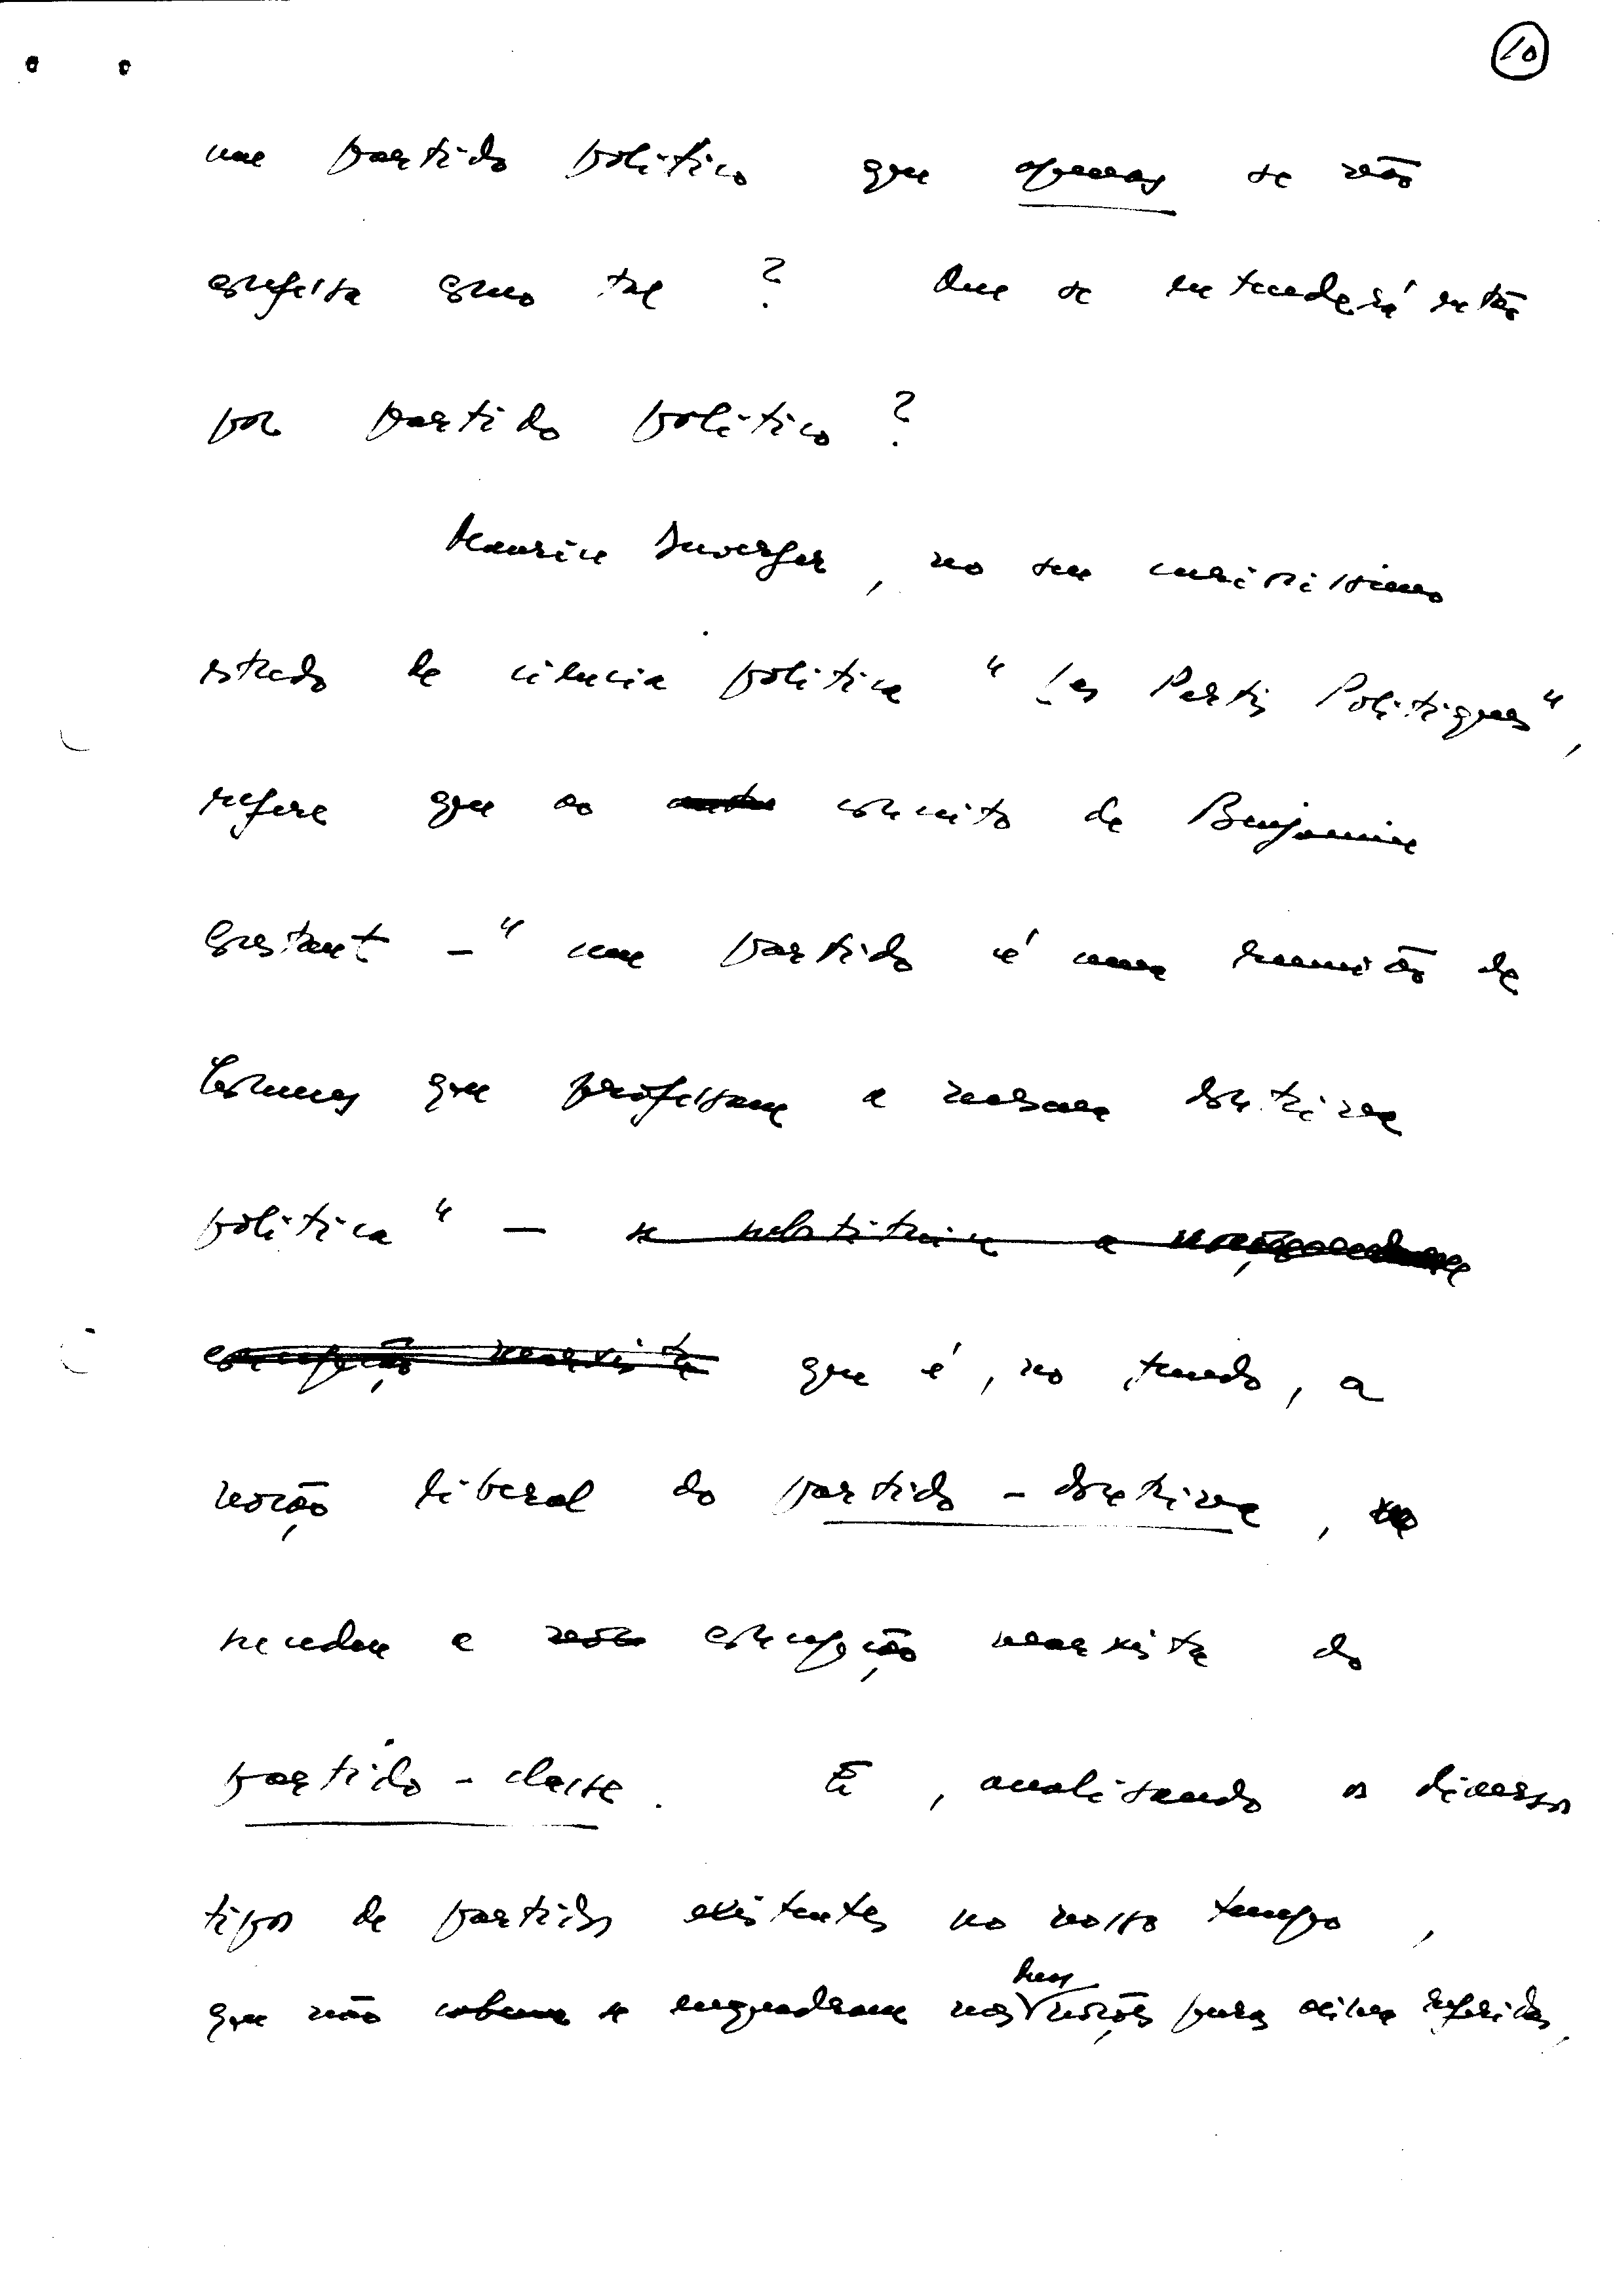 10
um partido político que apenas se não
confessa como tal ? Que se entenderá então
por partido político ?
Maurice Duverger, no seu
estudo de ciência política " Les Partis Politiques",
refere que ao conceito de Benjamin
Constant - " um partido é uma reunião de
homens que professam a mesma doutrina
política " - se substituiu a
concepção marxista que é, no fundo, a
noção liberal do partido - doutrina,
sucedeu a concepção marxista do
partido - classe. E, analisando os diversos
tipos de partidos existentes no nosso tempo,
que não se enquadram nas duas noções puras acima referidas,